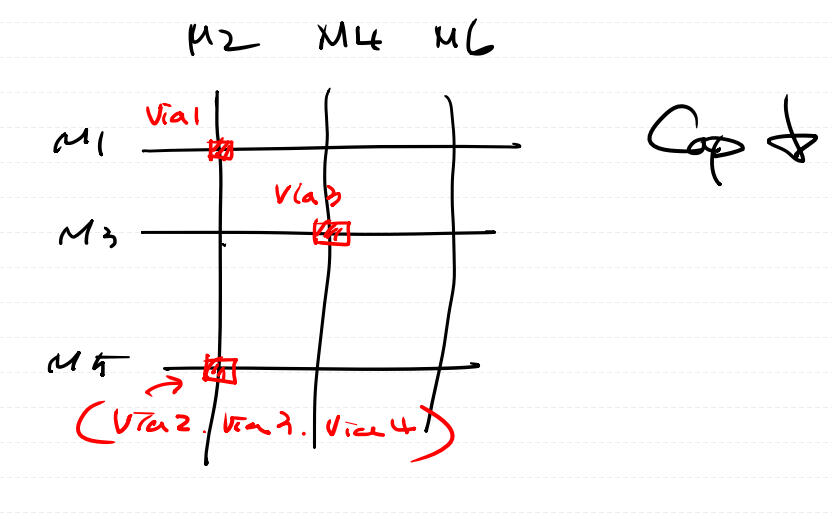 M2 M4 M6
Via1
M1
Cap ↓
Via3
M3
M5
(Via2. Via3. Via4)